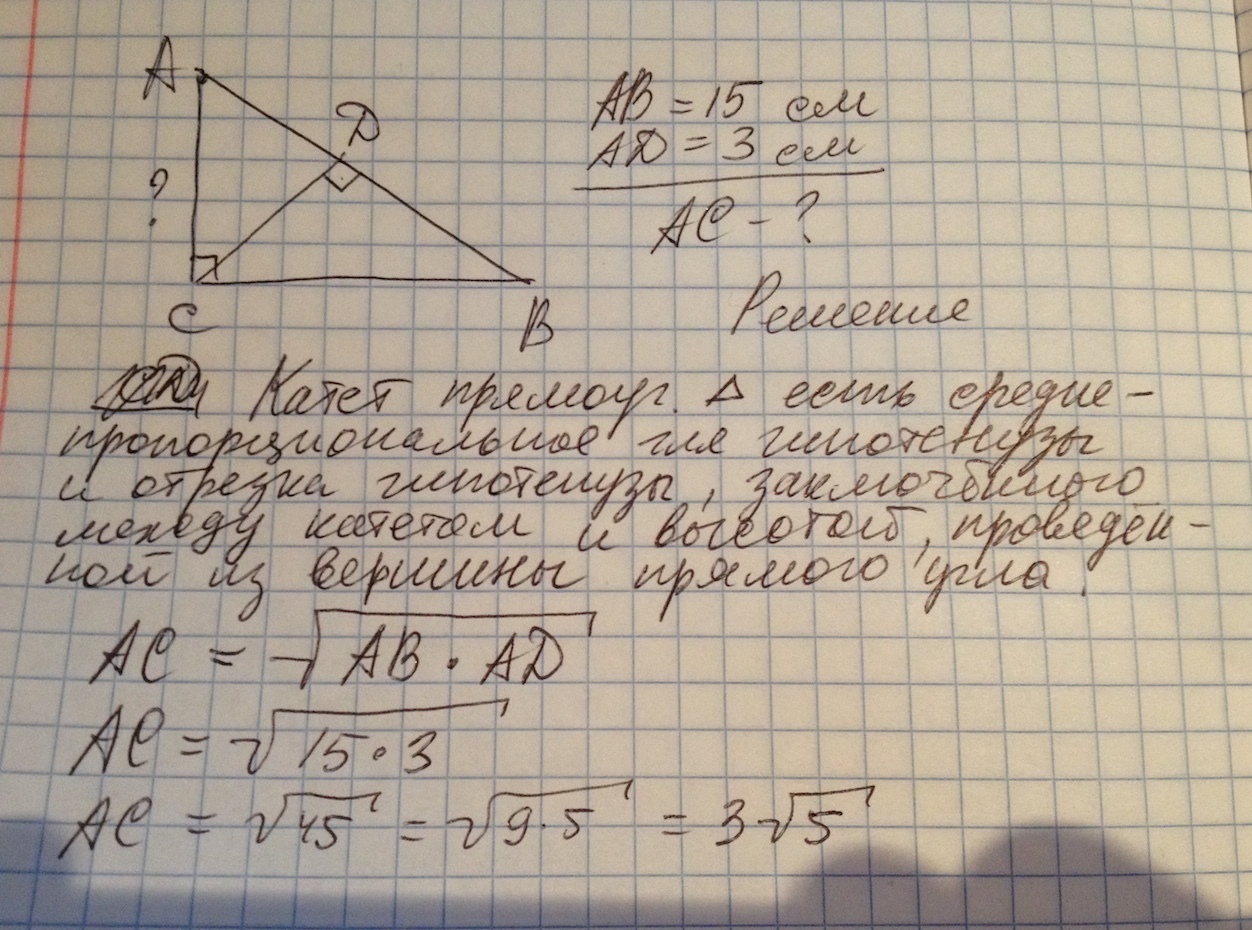 A
D
?
C
B
AB = 15 см
AD = 3 см
AC - ?
Решение
Катет прямоуг. Δ есть средне-
пропорциональное для гипотенузы
и отрезка гипотенузы, заключённого
между катетом и высотой, проведён-
ной из вершины прямого угла.
AC = √AB · AD
AC = √15 · 3
AC = √45 = √9 · 5 = 3√5